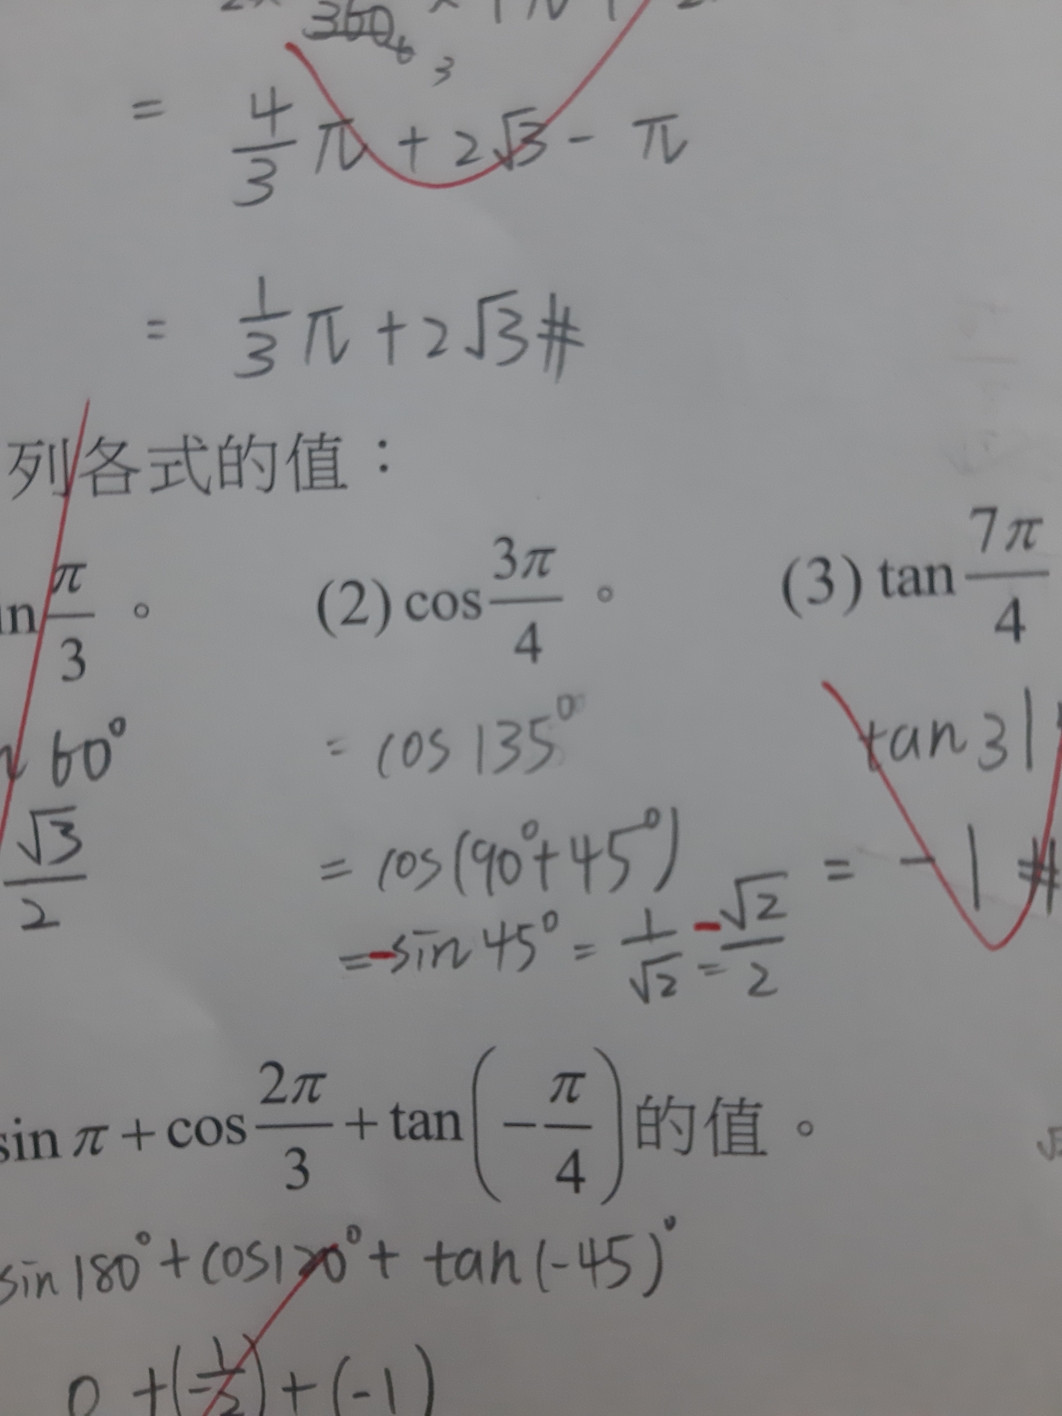 360 6 3
= 4/3 π + 2√3 - π
= 1/3 π + 2√3 #
列各式的值：
π/3 。 (2) cos 3π/4 。 (3) tan 7π/4
60° = cos 135° tan 31
√3/2 = cos(90°+45°) = -1 #
= -sin 45° = 1/√2 = -√2/2
sin π + cos 2π/3 + tan(-π/4) 的值。
sin 180° + cos 120° + tan(-45)°
0 + (-1/2) + (-1)